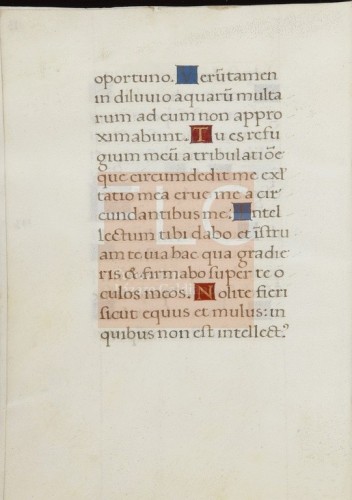 oportuno. Verūtamen
in diluuio aquarū multa
rum ad eum non appro
ximabunt. Tu es refu
gium meū a tribulatiōe
que circumdedit me exl
tatio mea erue me a cir
cundantibus me. Intel
lectum tibi dabo et īstru
am te uia hac qua gradie
ris & firmabo super te o
culos meos. Nolite fieri
sicut equus et mulus: in
quibus non est intellect.ꝰ